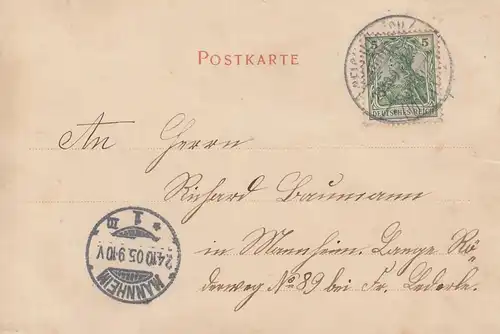 5 5
DEUTSCHES REICH
POSTKARTE
An Herrn
Richard Baumann
in Mannheim. Lange Rö-
derweg No 89 bei Fr. Lederle.
* 1 m
24.10.05.9-10V.
MANNHEIM